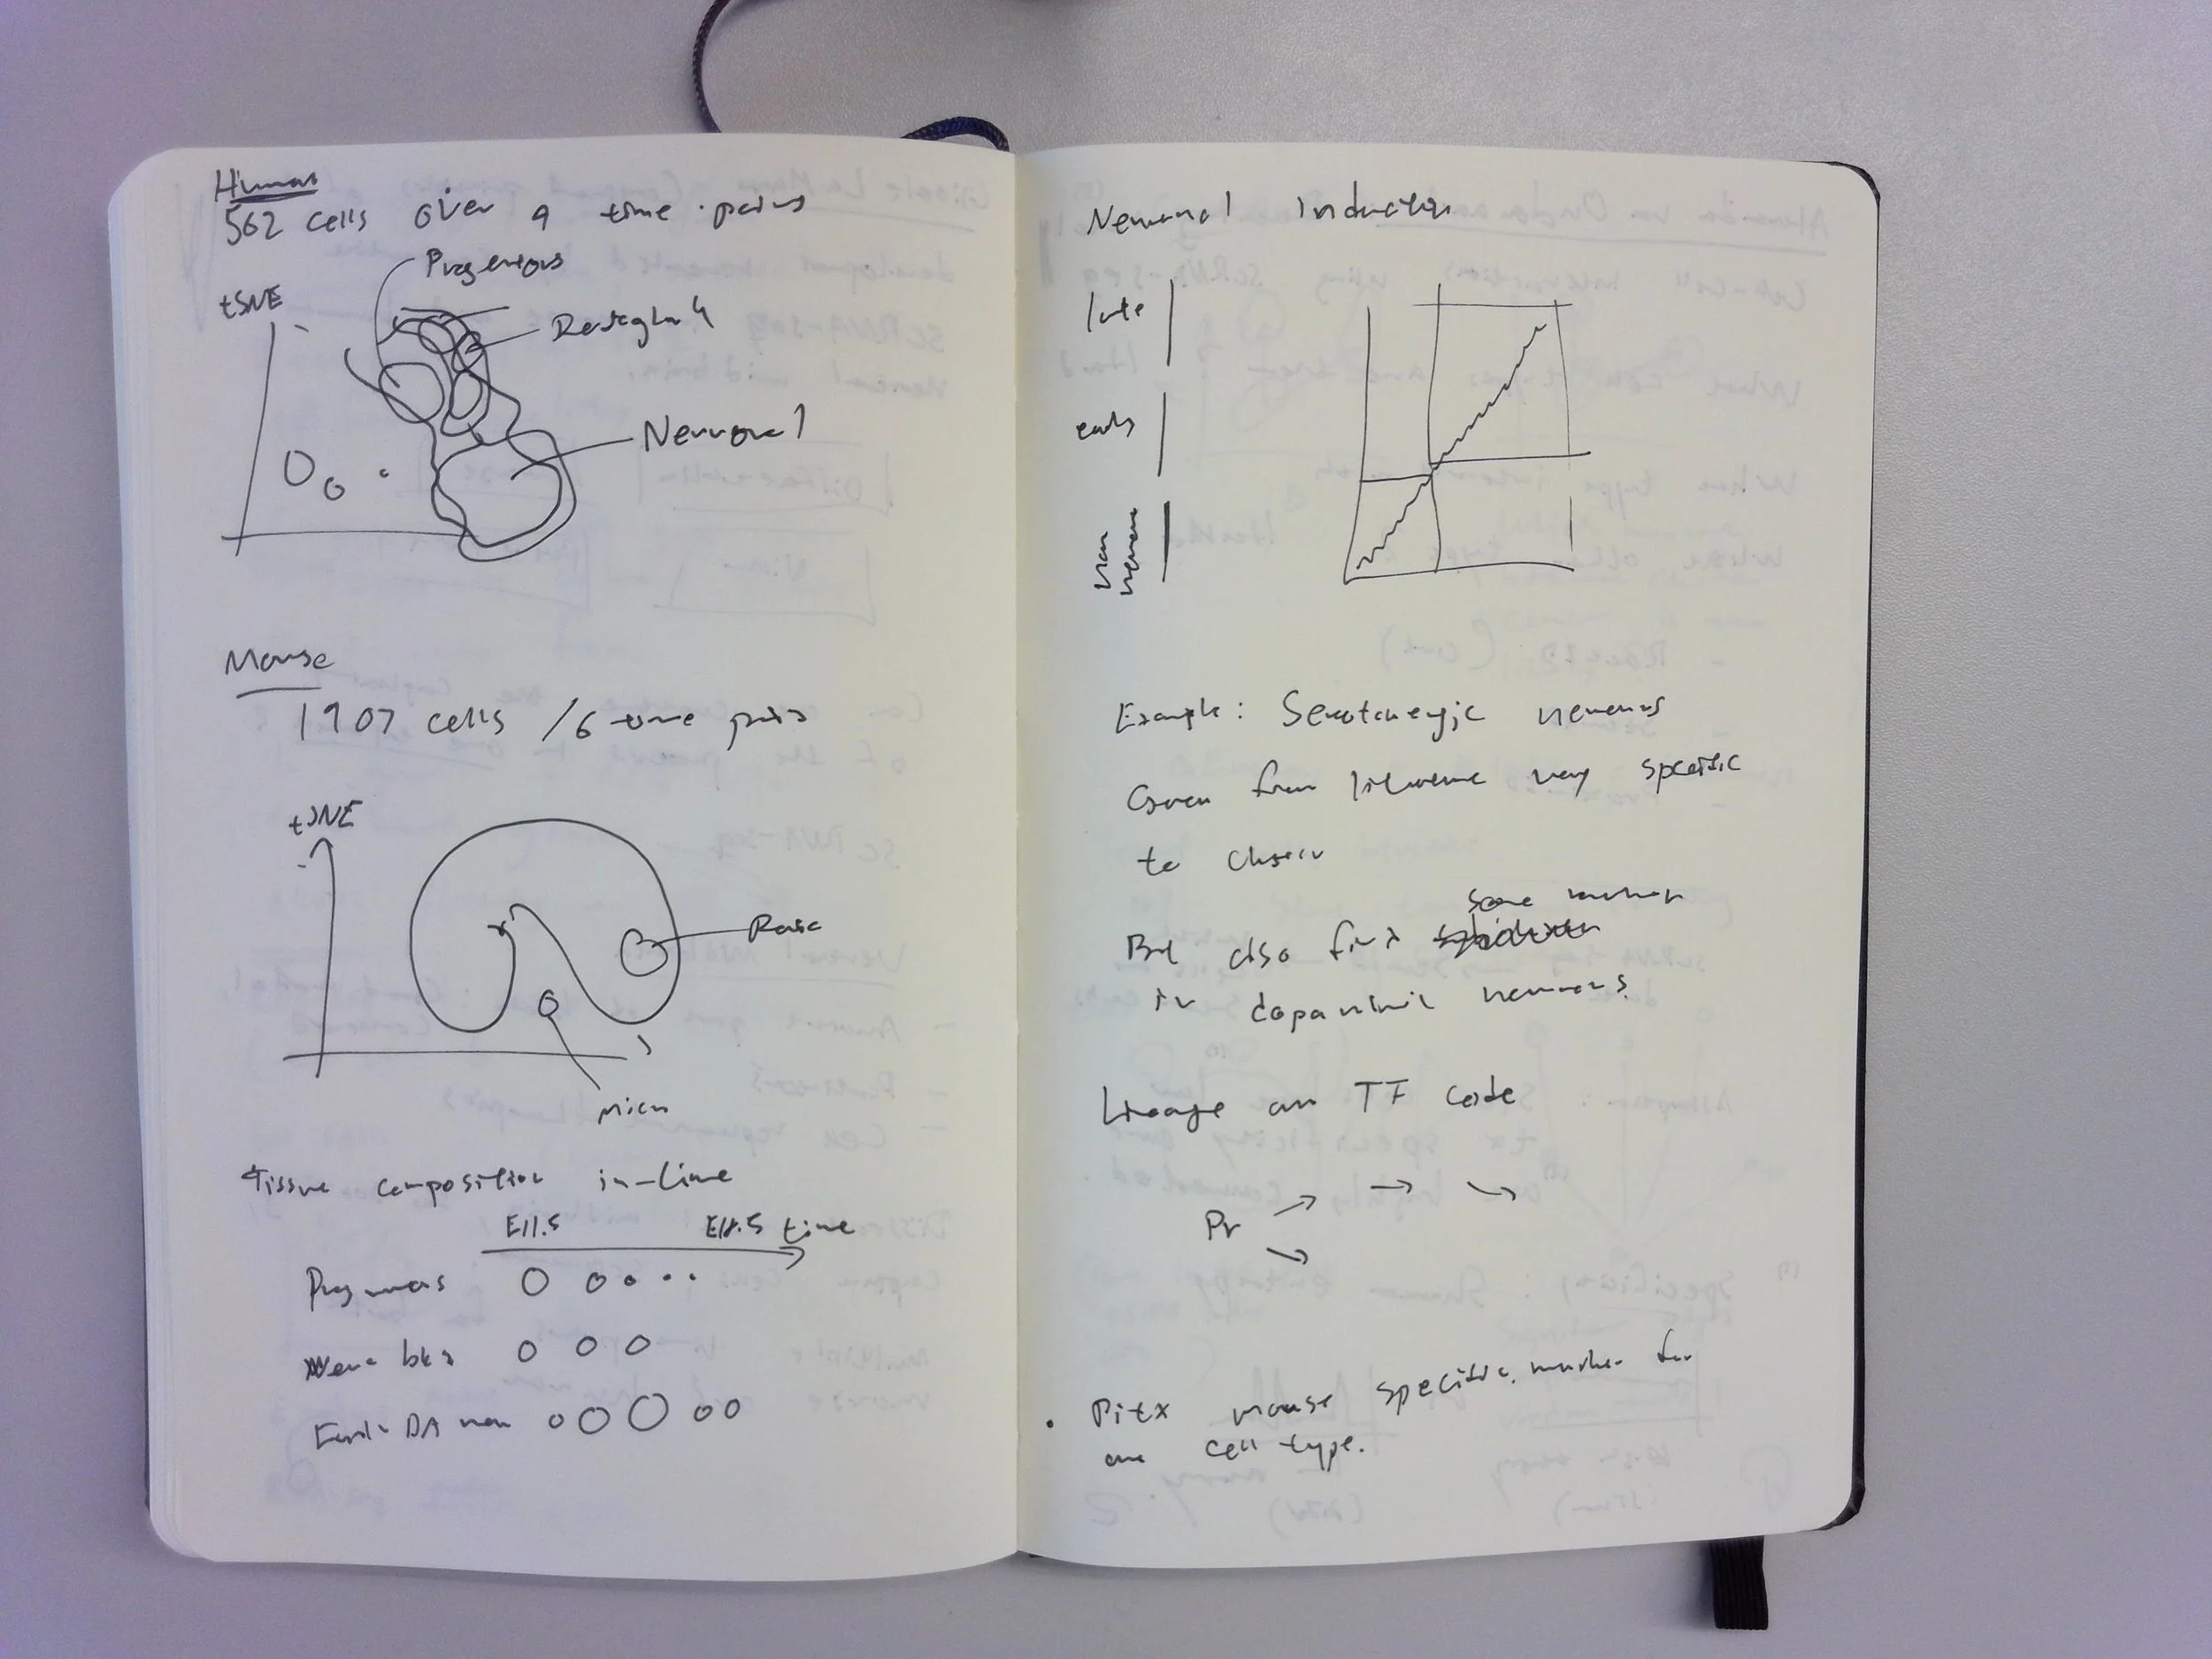 Human
562 cells over 9 time points
Progenitors
tSNE
Neuronal
Mouse
1907 cells / 6 time points
tSNE
Micr
Tissue composition in-time
E11.5 E18.5 time
Progenitors
Neuro bls
Early DA neu
Neuronal Induction
late
early
non
neuron
Example: Serotonergic neurons
Given from literature very specific
to cluster
some marker
But also find
in dopaminic neurons.
Lineage an TF code
Pr
Pitx mouse specific marker for
one cell type.